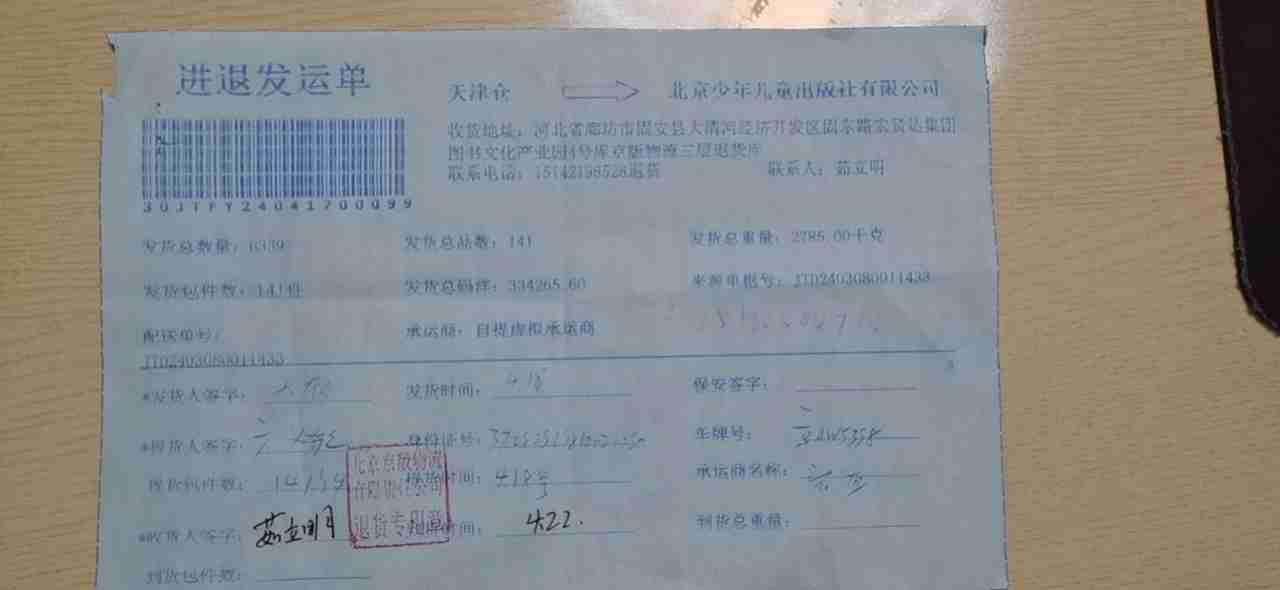 进退发运单
天津仓 北京少年儿童出版社有限公司
收货地址：河北省廊坊市固安县大清河经济开发区固东路宏景达集团
图书文化产业园4号库京版物流三层退货库
联系电话：15142198528退货 联系人：茹立明
30JTFY24041700099
发货总数量：6339 发货总品数：141 发货总重量：2785.00千克
发货包件数：141件 发货总码洋：334265.60 来源单据号：JTD2403080011433
配送单号： 承运商：自提虚拟承运商
JTD2403080011433
*发货人签字： 发货时间：4.18 保安签字：
*提货人签字： 身份证号： 车牌号：
提货包件数： 提货时间：418号 承运商名称：
*收货人签字：茹立明 到货时间：4.22. 到货总重量：
到货包件数：
北京京版物流
有限责任公司
退货专用章